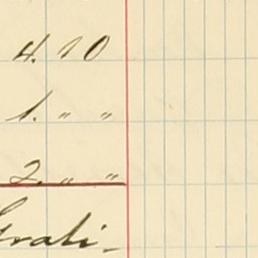 4. 10
1. " "
2. " "
Grati-